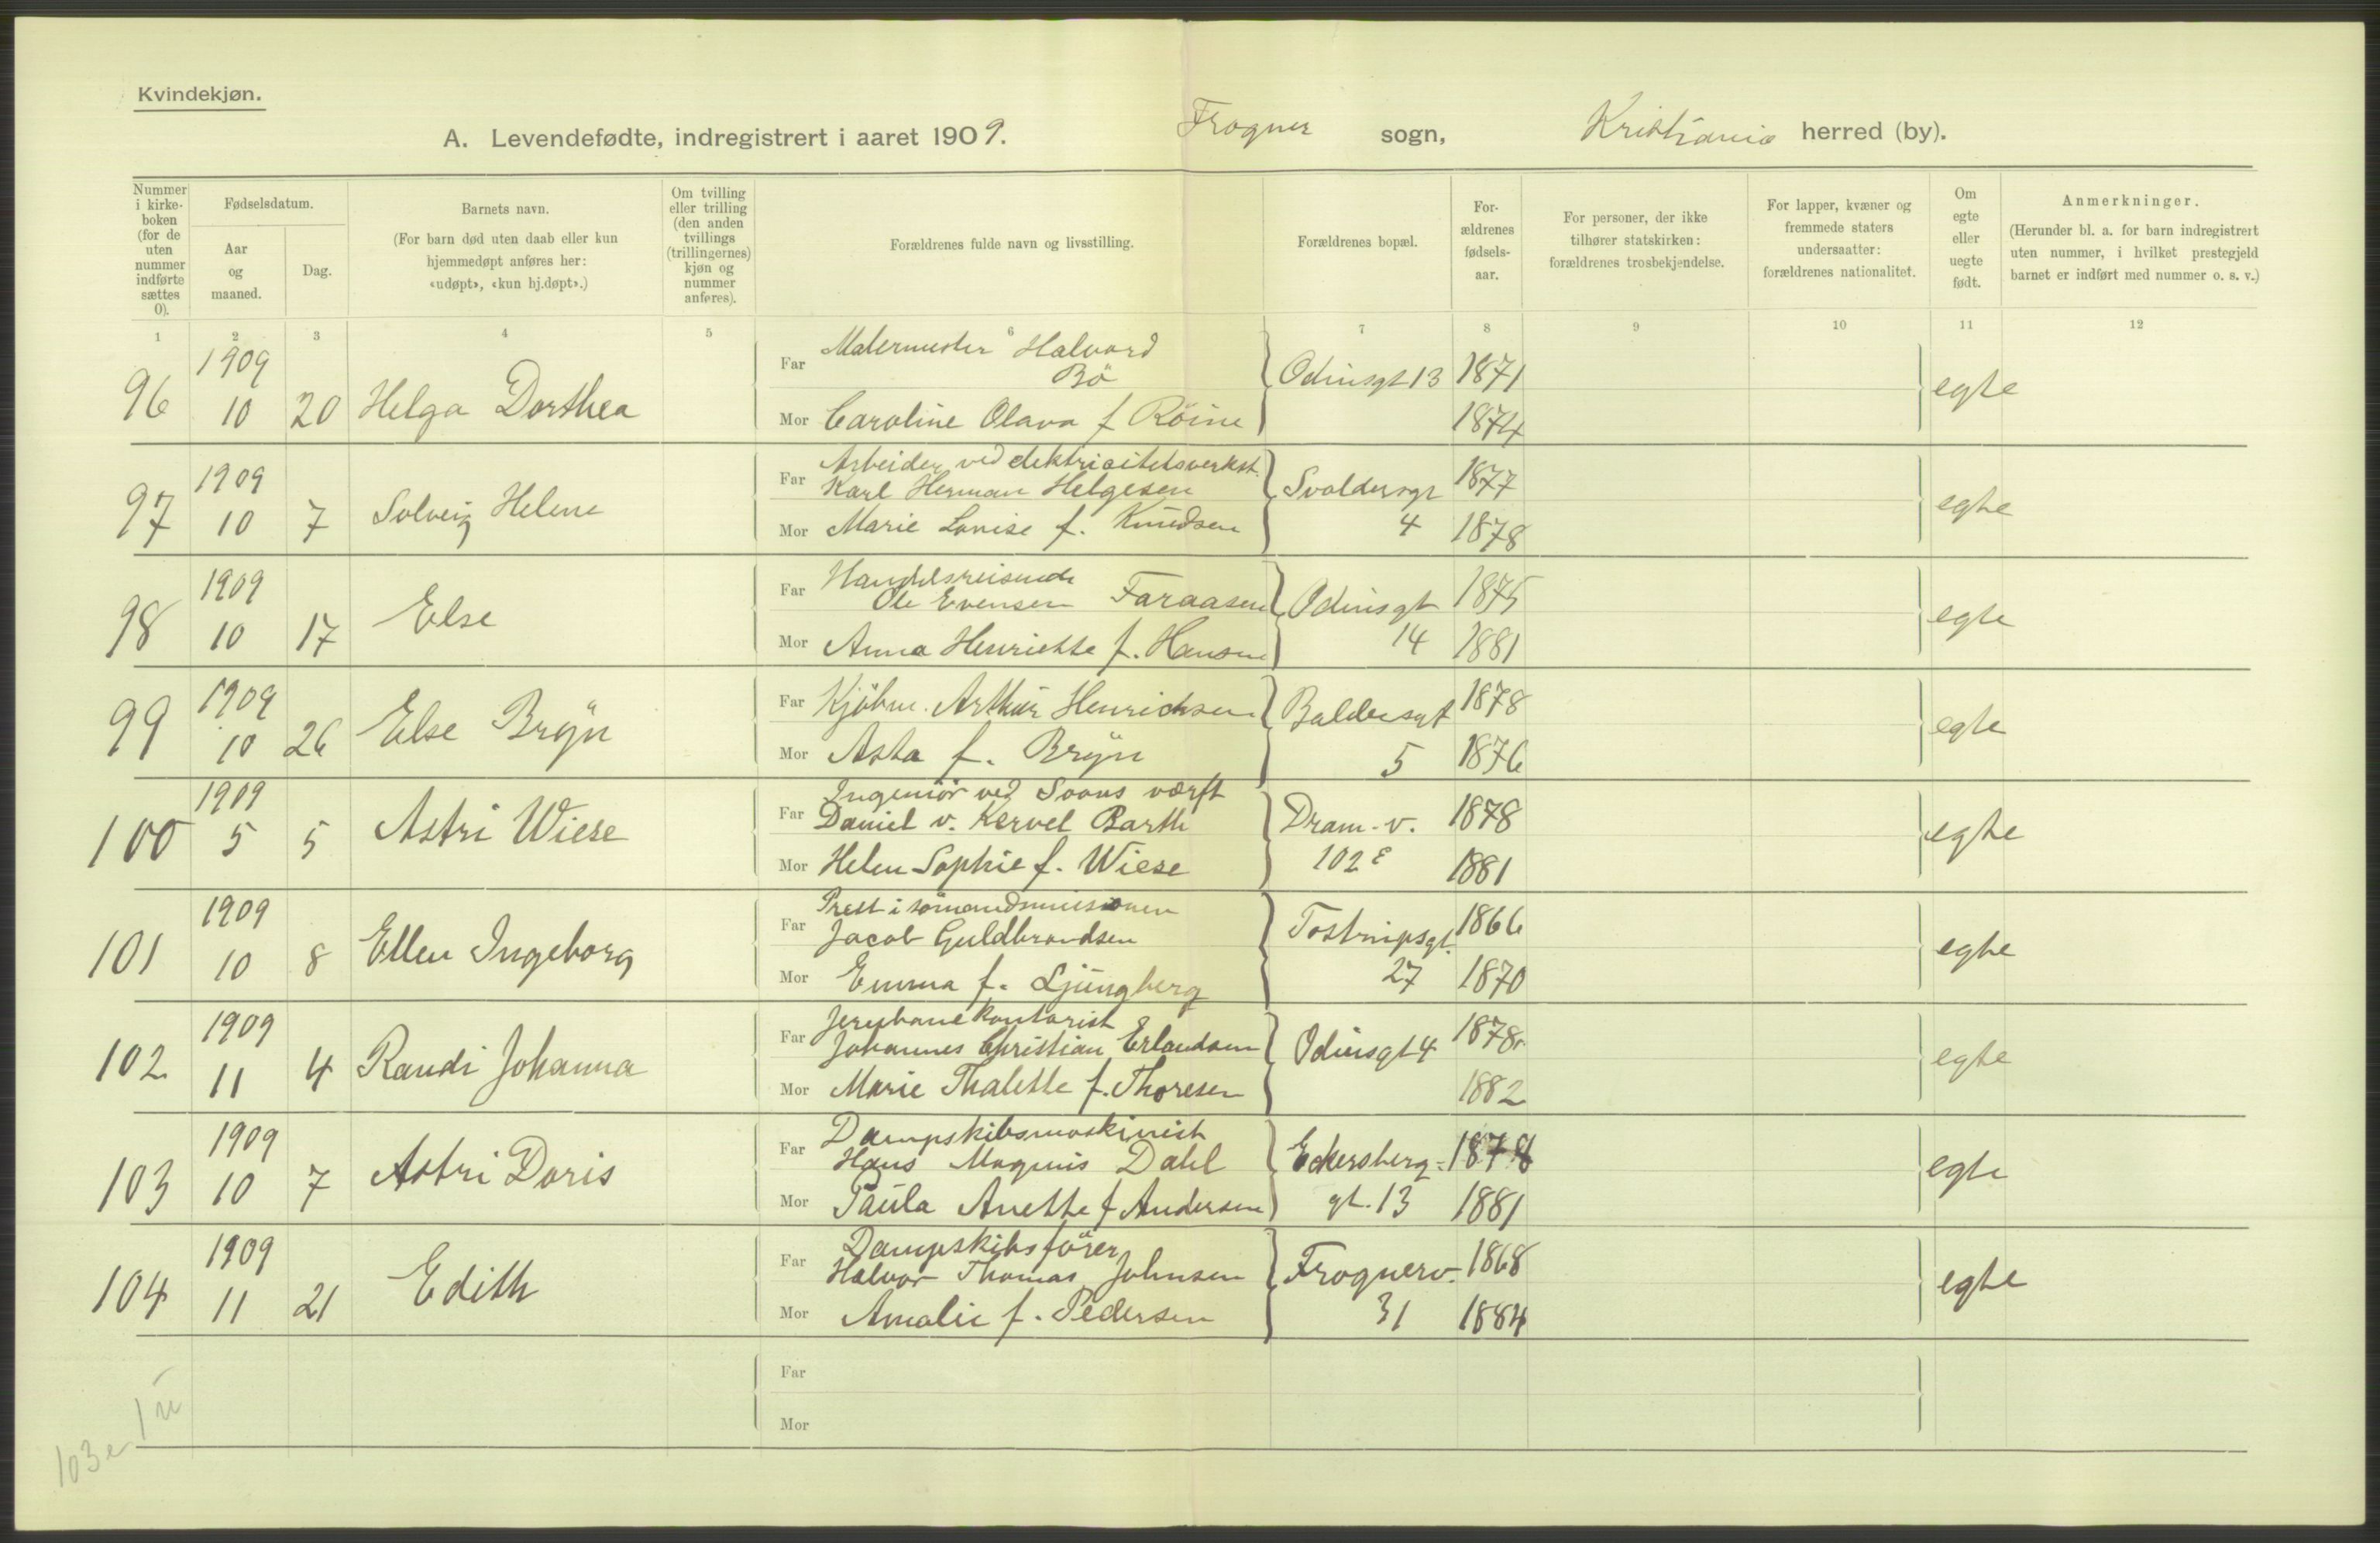 Kvindekjøn.
A. Levendefødte, indregistrert i aaret 1909. Frogner sogn, Kristiania herred (by).
Nummer i kirke- boken (for de uten nummer indførte sættes 0).
Fødselsdatum.
Aar og maaned.
Dag.
Barnets navn.
(For barn død uten daab eller kun hjemmedøpt anføres her: «udøpt», «kun hj.døpt».)
Om tvilling eller trilling (den anden tvillings (trillingernes) kjøn og nummer anføres).
Forældrenes fulde navn og livsstilling.
Forældrenes bopæl.
For- ældrenes fødsels- aar.
For personer, der ikke tilhører statskirken: forældrenes trosbekjendelse.
For lapper, kvæner og fremmede staters undersaatter: forældrenes nationalitet.
Om egte eller uegte født.
Anmerkninger.
(Herunder bl. a. for barn indregistrert uten nummer, i hvilket prestegjeld barnet er indført med nummer o. s. v.)
1 2 3 4 5 6 7 8 9 10 11 12
96 1909 10 20 Helga Dorthea
Far Malermester Halvord
Bö Odinsgt 13 1871 egte
Mor Caroline Olava f Röine 1874
97 1909 10 7 Solveig Helene
Far Arbeider ved elektricitetsverkst.
Karl Herman Helgesen Svoldersgt 1877 egte
Mor Marie Lovise f. Knudsen 4 1878
98 1909 10 17 Else
Far Handelsreisende
Ole Evensen Faraasen Odinsgt 1875 egte
Mor Anna Henriette f. Hansen 14 1881
99 1909 10 26 Else Bryn
Far Kjöbm. Arthur Henrichsen Baldersgt 1878 egte
Mor Asta f. Bryn 5 1876
100 1909 5 5 Astri Wiese
Far Ingeniör ved Soons værft
Daniel v. Kervel Barth Dram.v. 1878 egte
Mor Helen Sophie f. Wiese 102 E 1881
101 1909 10 8 Ellen Ingeborg
Far Prest i sömandsmissionen
Jacob Guldbrandsen Tostrupsgt. 1866 egte
Mor Emma f. Ljungberg 27 1870
102 1909 11 4 Randi Johanna
Far Jernbanekontorist
Johannes Christian Erlandsen Odinsgt 4 1878 egte
Mor Marie Thalette f. Thoresen 1882
103 1909 10 7 Astri Doris
Far Dampskibsmaskinist
Hans Magnus Dahl Eckersberg- 1878 egte
Mor Paula Anette f Andersen gt. 13 1881
104 1909 11 21 Edith
Far Dampskibsförer
Halvor Thomas Johnsen Frognerv. 1868 egte
Mor Amalie f. Pedersen 31 1884
Far
Mor
103 e